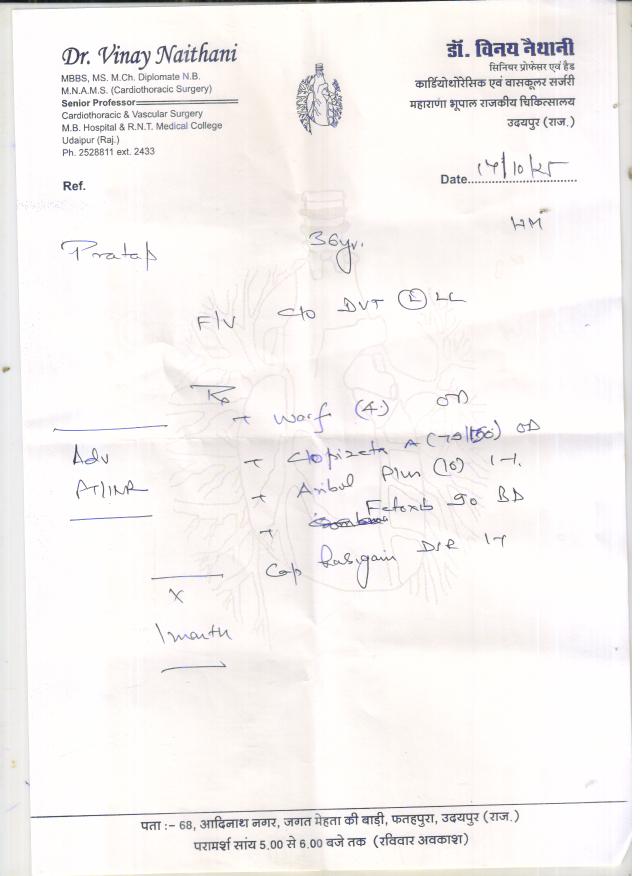 Dr. Vinay Naithani
MBBS, MS. M.Ch. Diplomate N.B.
M.N.A.M.S. (Cardiothoracic Surgery)
Senior Professor
Cardiothoracic & Vascular Surgery
M.B. Hospital & R.N.T. Medical College
Udaipur (Raj.)
Ph. 2528811 ext. 2433
डॉ. विनय नैथानी
सिनियर प्रोफेसर एवं हैड
कार्डियोथोरेसिक एवं वासकूलर सर्जरी
महाराणा भूपाल राजकीय चिकित्सालय
उदयपुर (राज.)
Ref.
Date
Pratap 36yr.
F/U c/o DVT (L) LL
Rx
+ Warf (4) OD
+ Clopizeta A (75/150) OD
Adv
PT/INR
+ Plus (10)
+ 90 BD
Cap DSR
x
1 month
पता :– 68, आदिनाथ नगर, जगत मेहता की बाड़ी, फतहपुरा, उदयपुर (राज.)
परामर्श सांय 5.00 से 6.00 बजे तक (रविवार अवकाश)